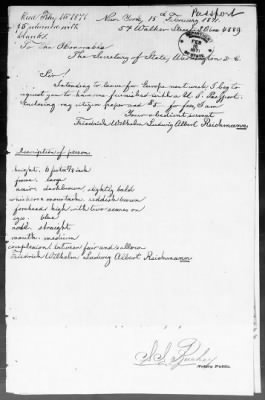 Passport
Recd Feby 16 1871
New York 15th February 1871.
$5 returned with
blanks.
57 Walker Street, P. O. Box 4889
To the Honorable
FEB
The Secretary of State, Washington D. C.
Sir!
Intending to leave for Europe next week I beg to
request you to have me furnished with a U. S. Passport.
Enclosing my citizen paper and $5. for fees, I am
Your obedient servant
Friedrich Wilhelm Ludwig Albert Reichmann
Description of person.
height: 6 feet 1/2 inch
face: large
hair: darkbrown slightly bald
whiskers & moustach: reddish brown
forehead: high with two scars on
eyes: blue
nose: straight
mouth: medium
complexion between fair and sallow
Friedrich Wilhelm Ludwig Albert Reichmann
Notary Public.